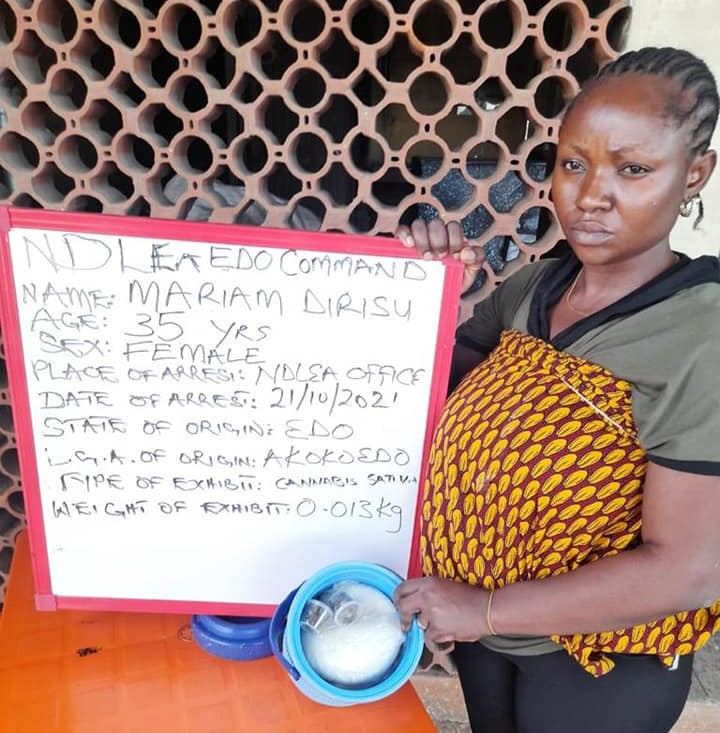 NDLEA EDO COMMAND
NAME: MARIAM DIRISU
AGE: 35 YRS
SEX: FEMALE
PLACE OF ARREST: NDLEA OFFICE
DATE OF ARREST: 21/10/2021
STATE OF ORIGIN: EDO
L.G.A. OF ORIGIN: AKOKOEDO
TYPE OF EXHIBIT: CANNABIS SATIVA
WEIGHT OF EXHIBIT: 0.013kg